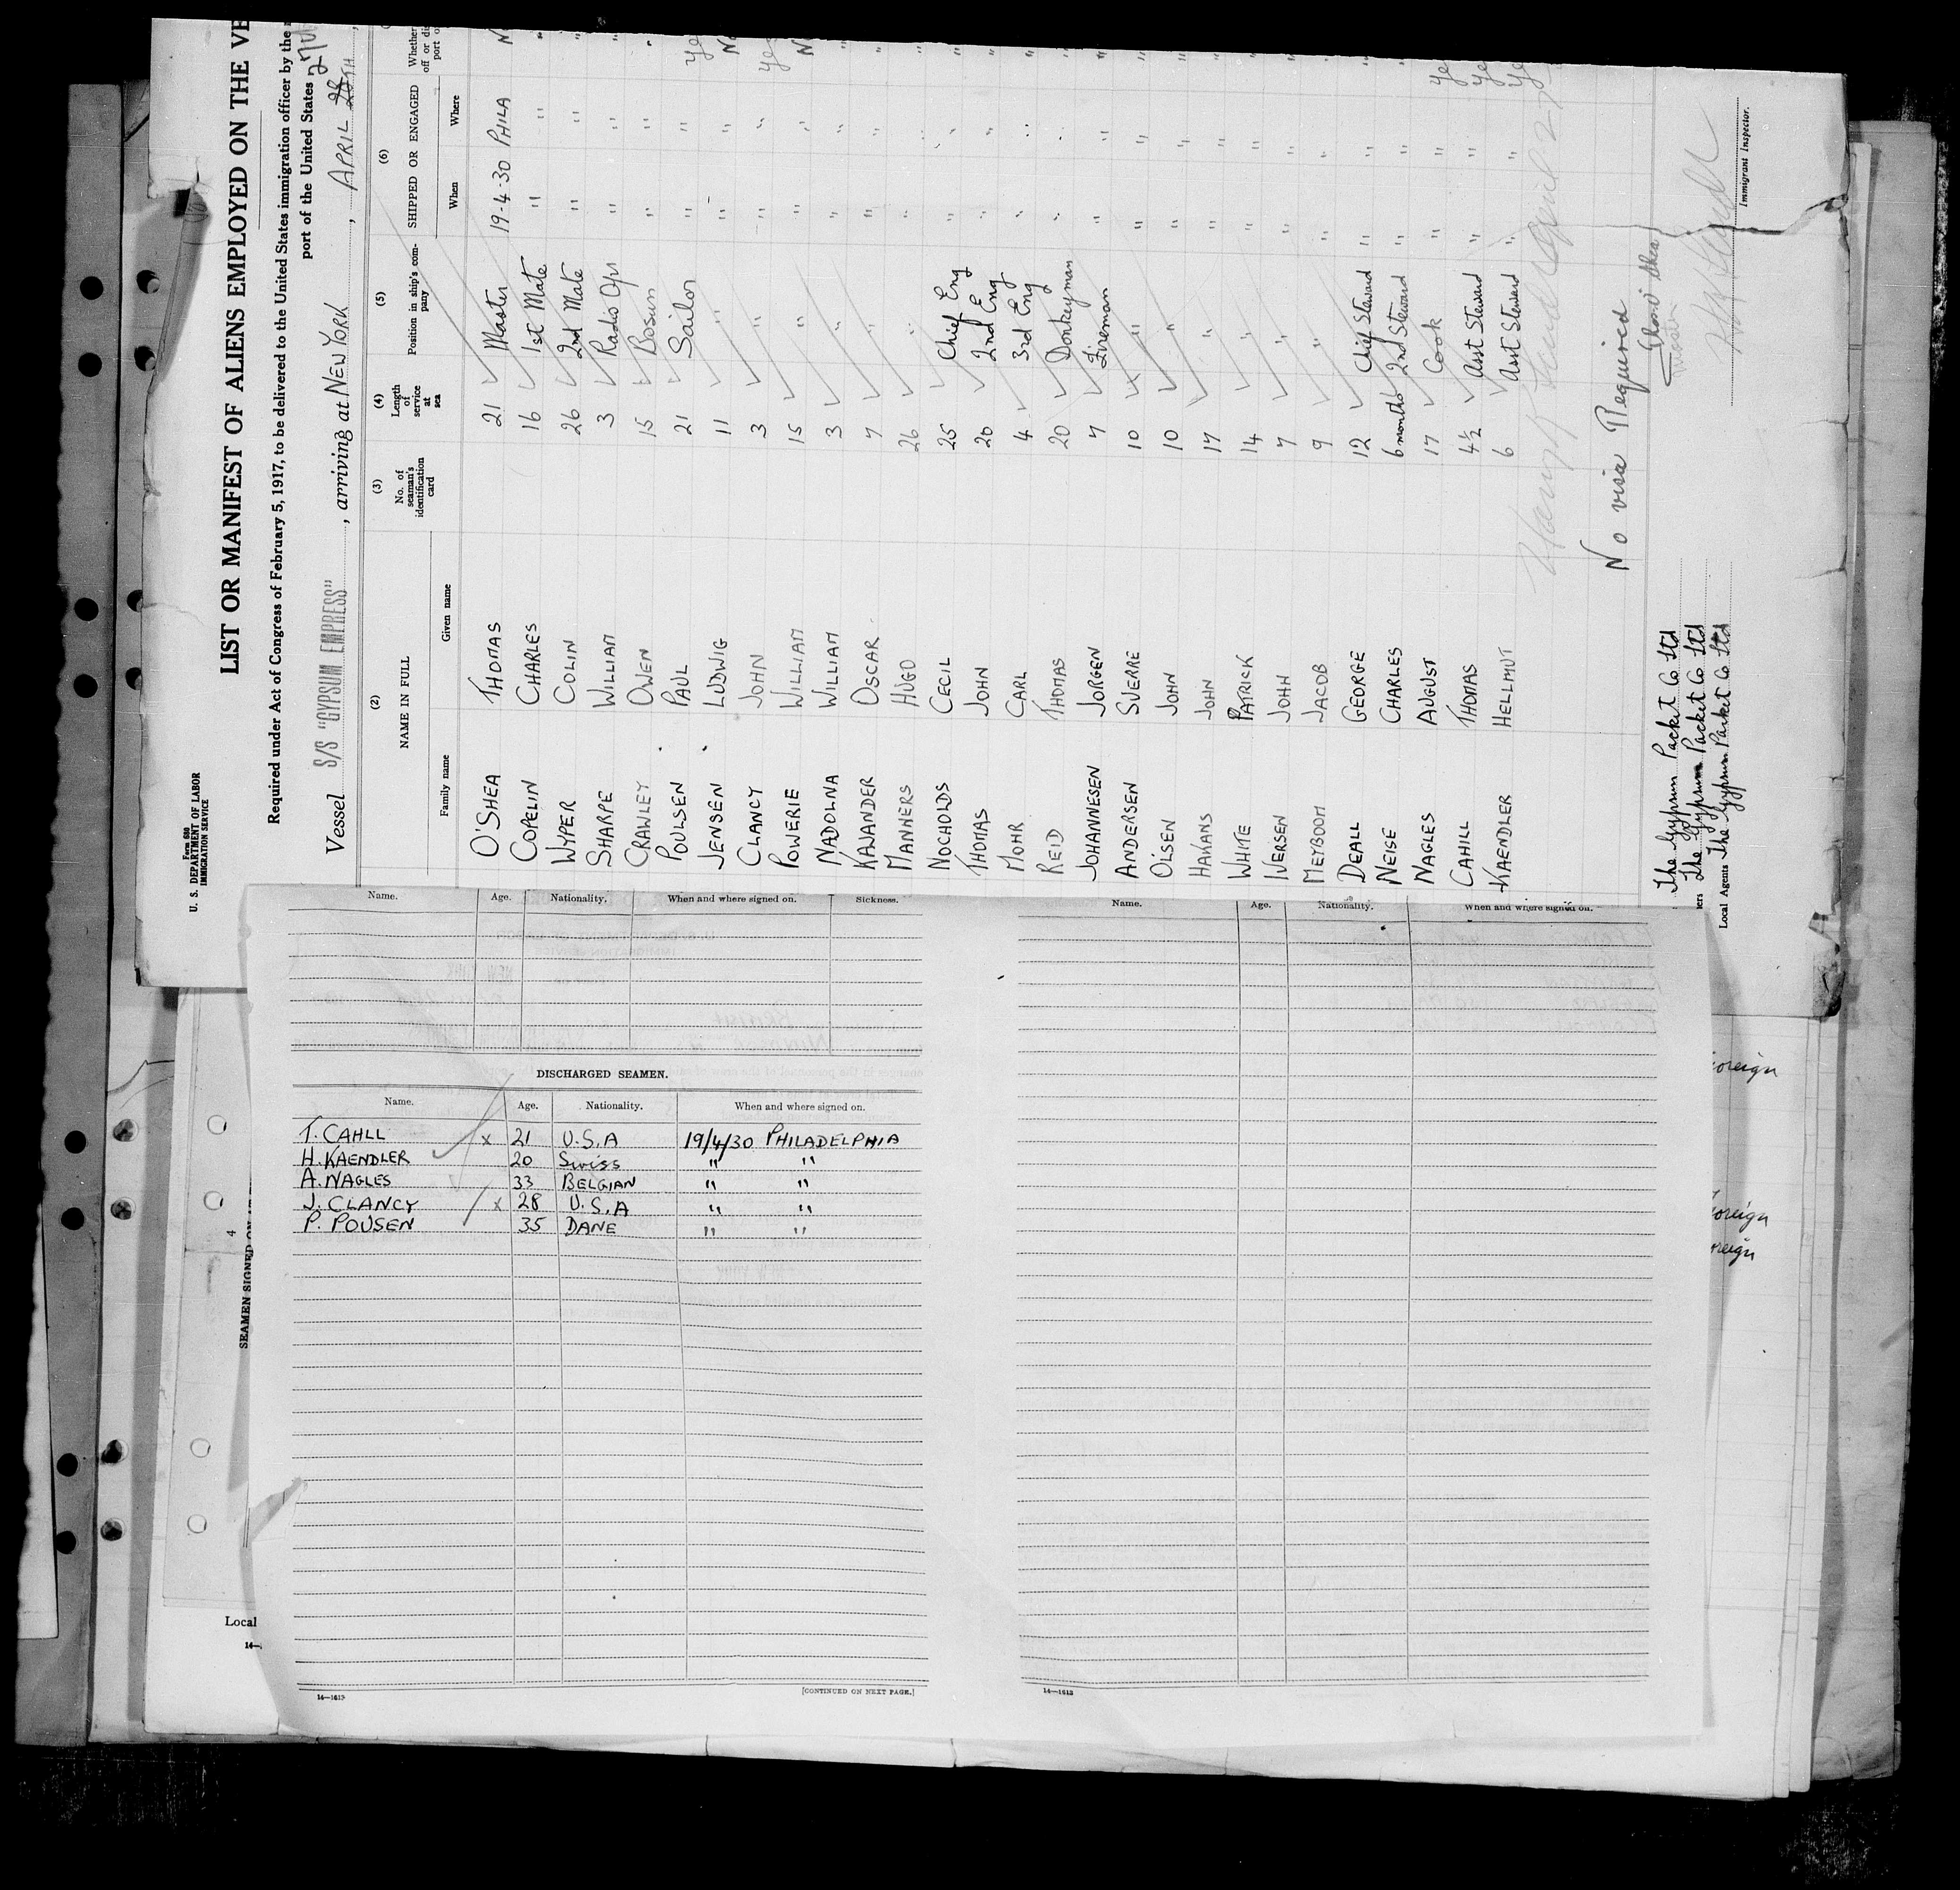 Form 680
U. S. DEPARTMENT OF LABOR
IMMIGRATION SERVICE
LIST OR MANIFEST OF ALIENS EMPLOYED ON THE VE
Required under Act of Congress of February 5, 1917, to be delivered to the United States immigration officer by the
port of the United States
Vessel S/S "GYPSUM EMPRESS", arriving at NEW YORK, APRIL
(2) (3) (4) (5) (6)
NAME IN FULL No. of seaman's identification card Length of service at sea Position in ship's company SHIPPED OR ENGAGED Whether
Family name Given name When Where
O'SHEA THOMAS 21 Master 19-4-30 PHILA
COPELIN CHARLES 16 1st Mate " "
WYPER COLIN 26 2nd Mate " "
SHARPE WILLIAM 3 Radio Opr " "
CRAWLEY OWEN 15 Bosun " "
POULSEN PAUL 21 Sailor " " Ye
JENSEN LUDWIG 11 " " " N
CLANCY JOHN 3 " " " Yes
POWERIE WILLIAM 15 " " " N
NADOLNA WILLIAM 3 " " " "
KAJANDER OSCAR 7 " " " "
MANNERS HUGO 26 " " " "
NOCHOLDS CECIL 25 Chief Eng " " "
THOMAS JOHN 20 2nd Eng " " "
MOHR CARL 4 3rd Eng " " "
REID THOMAS 20 Donkeyman " " "
JOHANNESEN JORGEN 7 Fireman " " "
ANDERSEN SVERRE 10 " " " "
OLSEN JOHN 10 " " " "
HAKANS JOHN 17 " " " "
WHITE PATRICK 14 " " " "
IVERSEN JOHN 7 " " " "
MEYBOOM JACOB 9 " " " "
DEALL GEORGE 12 Chief Steward " " "
NEISE CHARLES 6 months 2nd Steward " " "
NAGLES AUGUST 17 Cook " " Ye
CAHILL THOMAS 4½ Asst Steward " " Ye
KAENDLER HELLMUT 6 Asst Steward " " Ye
No visa Required
Immigrant Inspector.
The Gypsum Packet Co Ltd
ers The Gypsum Packet Co Ltd
Local Agents The Gypsum Packet Co Ltd
Name. Age. Nationality. When and where signed on. Sickness.
DISCHARGED SEAMEN.
Name. Age. Nationality. When and where signed on.
T. CAHLL x 21 U.S.A 19/4/30 PHILADELPHIA
H. KAENDLER 20 Swiss " "
A. NAGLES 33 BELGIAN " "
J. CLANCY x 28 U.S.A " "
P. POUSEN 35 DANE " "
14—1613
[CONTINUED ON NEXT PAGE.]
Name. Age. Nationality. When and where signed on.
14—1613
4
SEAMEN SIGNED ON
Local
14—
oreign
oreign
oreign